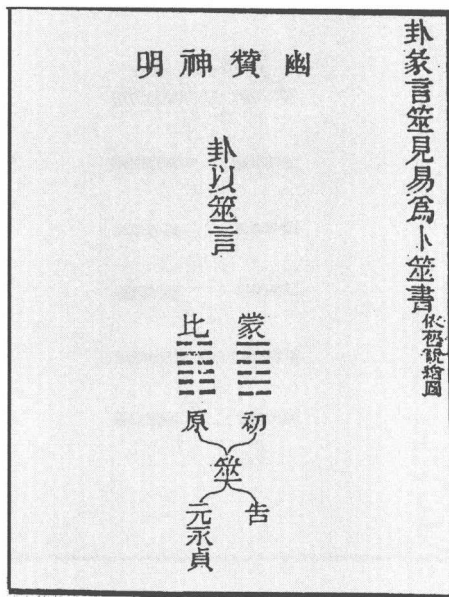 卦彖言筮見易爲卜筮書
依說繪圖
幽贊神明
卦以筮言
蒙
比
初
原
筮
告
元永貞